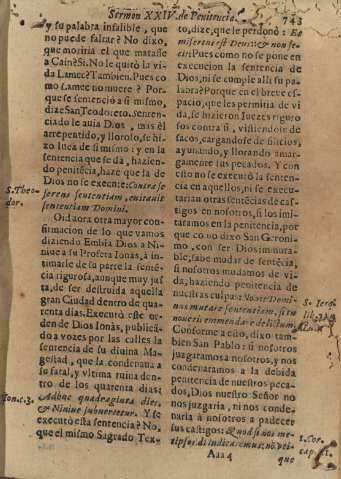 Sermon XXIV. de Penitencia. 743
y su palabra infalible, que
no puede faltar? No dixo,
que moriria el que matasse
a Cain? Si. No le quitò la vi-
da Lamec? Tambien. Pues co-
mo Lamec no muere? Por-
que se sentenciò a si mismo,
dize San Teodoreto. Senten-
ciado le auia Dios, mas èl
arrepentido, y lloroso, se hi-
zo luez de si mismo: y en la
sentencia que se dà, hazien-
do penitẽcia, haze que la de
Dios no se execute: Contra se
ferens sententiam, euitauit
sententiam Domini.
S. Theo-
dor.
Oid aora otra mayor con-
firmacion de lo que vamos
diziendo. Embia Dios a Ni-
niue a su Profeta Ionàs, à in-
timarle de su parte la sentẽ-
cia rigurosa, aunque muy jus-
ta, de ser destruida aquella
gran Ciudad dentro de qua-
renta dias. Executò este or-
den de Dios Ionàs, publicã-
do a vozes por las calles la
sentencia de su diuina Ma-
gestad, que la condenaua a
su fatal, y vltima ruina den-
tro de los quarenta dias:
Ion. c. 3.
Adhuc quadraginta dies,
& Niniue subuertetur. Y se
executò esta sentencia? No,
que el mismo Sagrado Tex-
to, dize, que le perdonò: Et
misertus est Deus: & non fe-
cit. Pues como no se pone en
execucion la sentencia de
Dios, ni se cumple alli su pa-
labra? Porque en el breve es-
pacio, que les permitia de vi-
da, se hizieron Iuezes riguro
sos contra si, vistiendose de
sacos, cargandose de silicios,
ayunando, y llorando amar-
gamente sus pecados. Y con
esto no se executò la senten-
cia en aquellos, ni se execu-
tarian otras sentẽcias de cas-
tigos en nosotros, si los imi-
taramos en la penitencia, por
que como dixo San Geroni-
mo, con ser Dios inmuta-
ble, sabe mudar de sentẽcia,
si nosotros mudamos de vi-
da, haziendo penitencia de
nuestras culpas: Nouit Domi-
nus mutare sententiam, si tu
noueris emmendare delictum.
Conforme a esto, dixo tam-
bien San Pablo: si nosotros
juzgaramos a nosotros, y nos
condenaramos a la debida
penitencia de nuestros peca-
dos, Dios nuestro Señor no
nos juzgaria, ni nos conde-
naria à nosotros a padecer
sus castigos: Quod si nos me-
tipsos dijudicaremus: no. vei-
S. Ierọ
1. Cor.
cap. 11.
Aaa 4 que